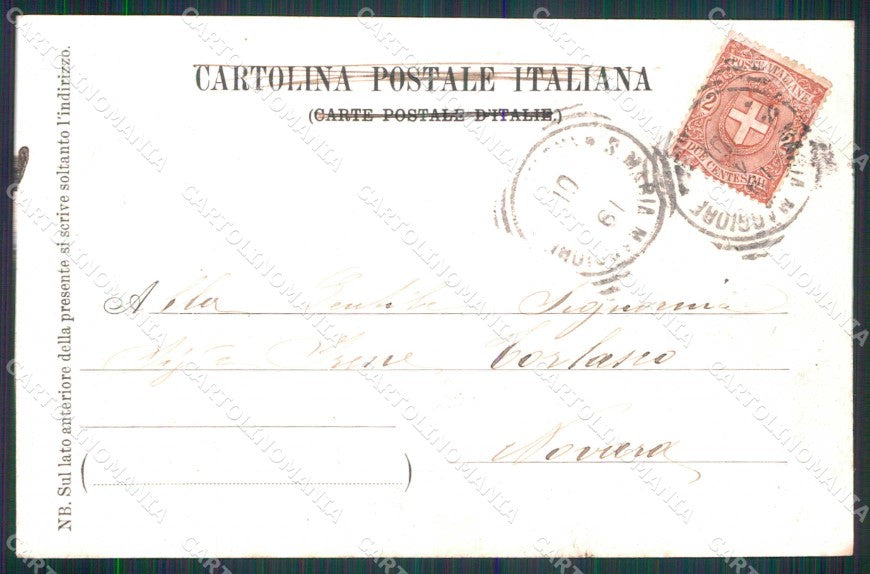 CARTOLINA POSTALE ITALIANA
(CARTE POSTALE D'ITALIE.)
POSTE ITALIANE
2
DUE CENTESIMI
S. MARIA MAGGIORE
19
01
MARIA MAGGIORE
Alla Gentile Signorina
Irene Torlasco
Novara
NB. Sul lato anteriore della presente si scrive soltanto l'indirizzo.
CARTOLINOMANIA